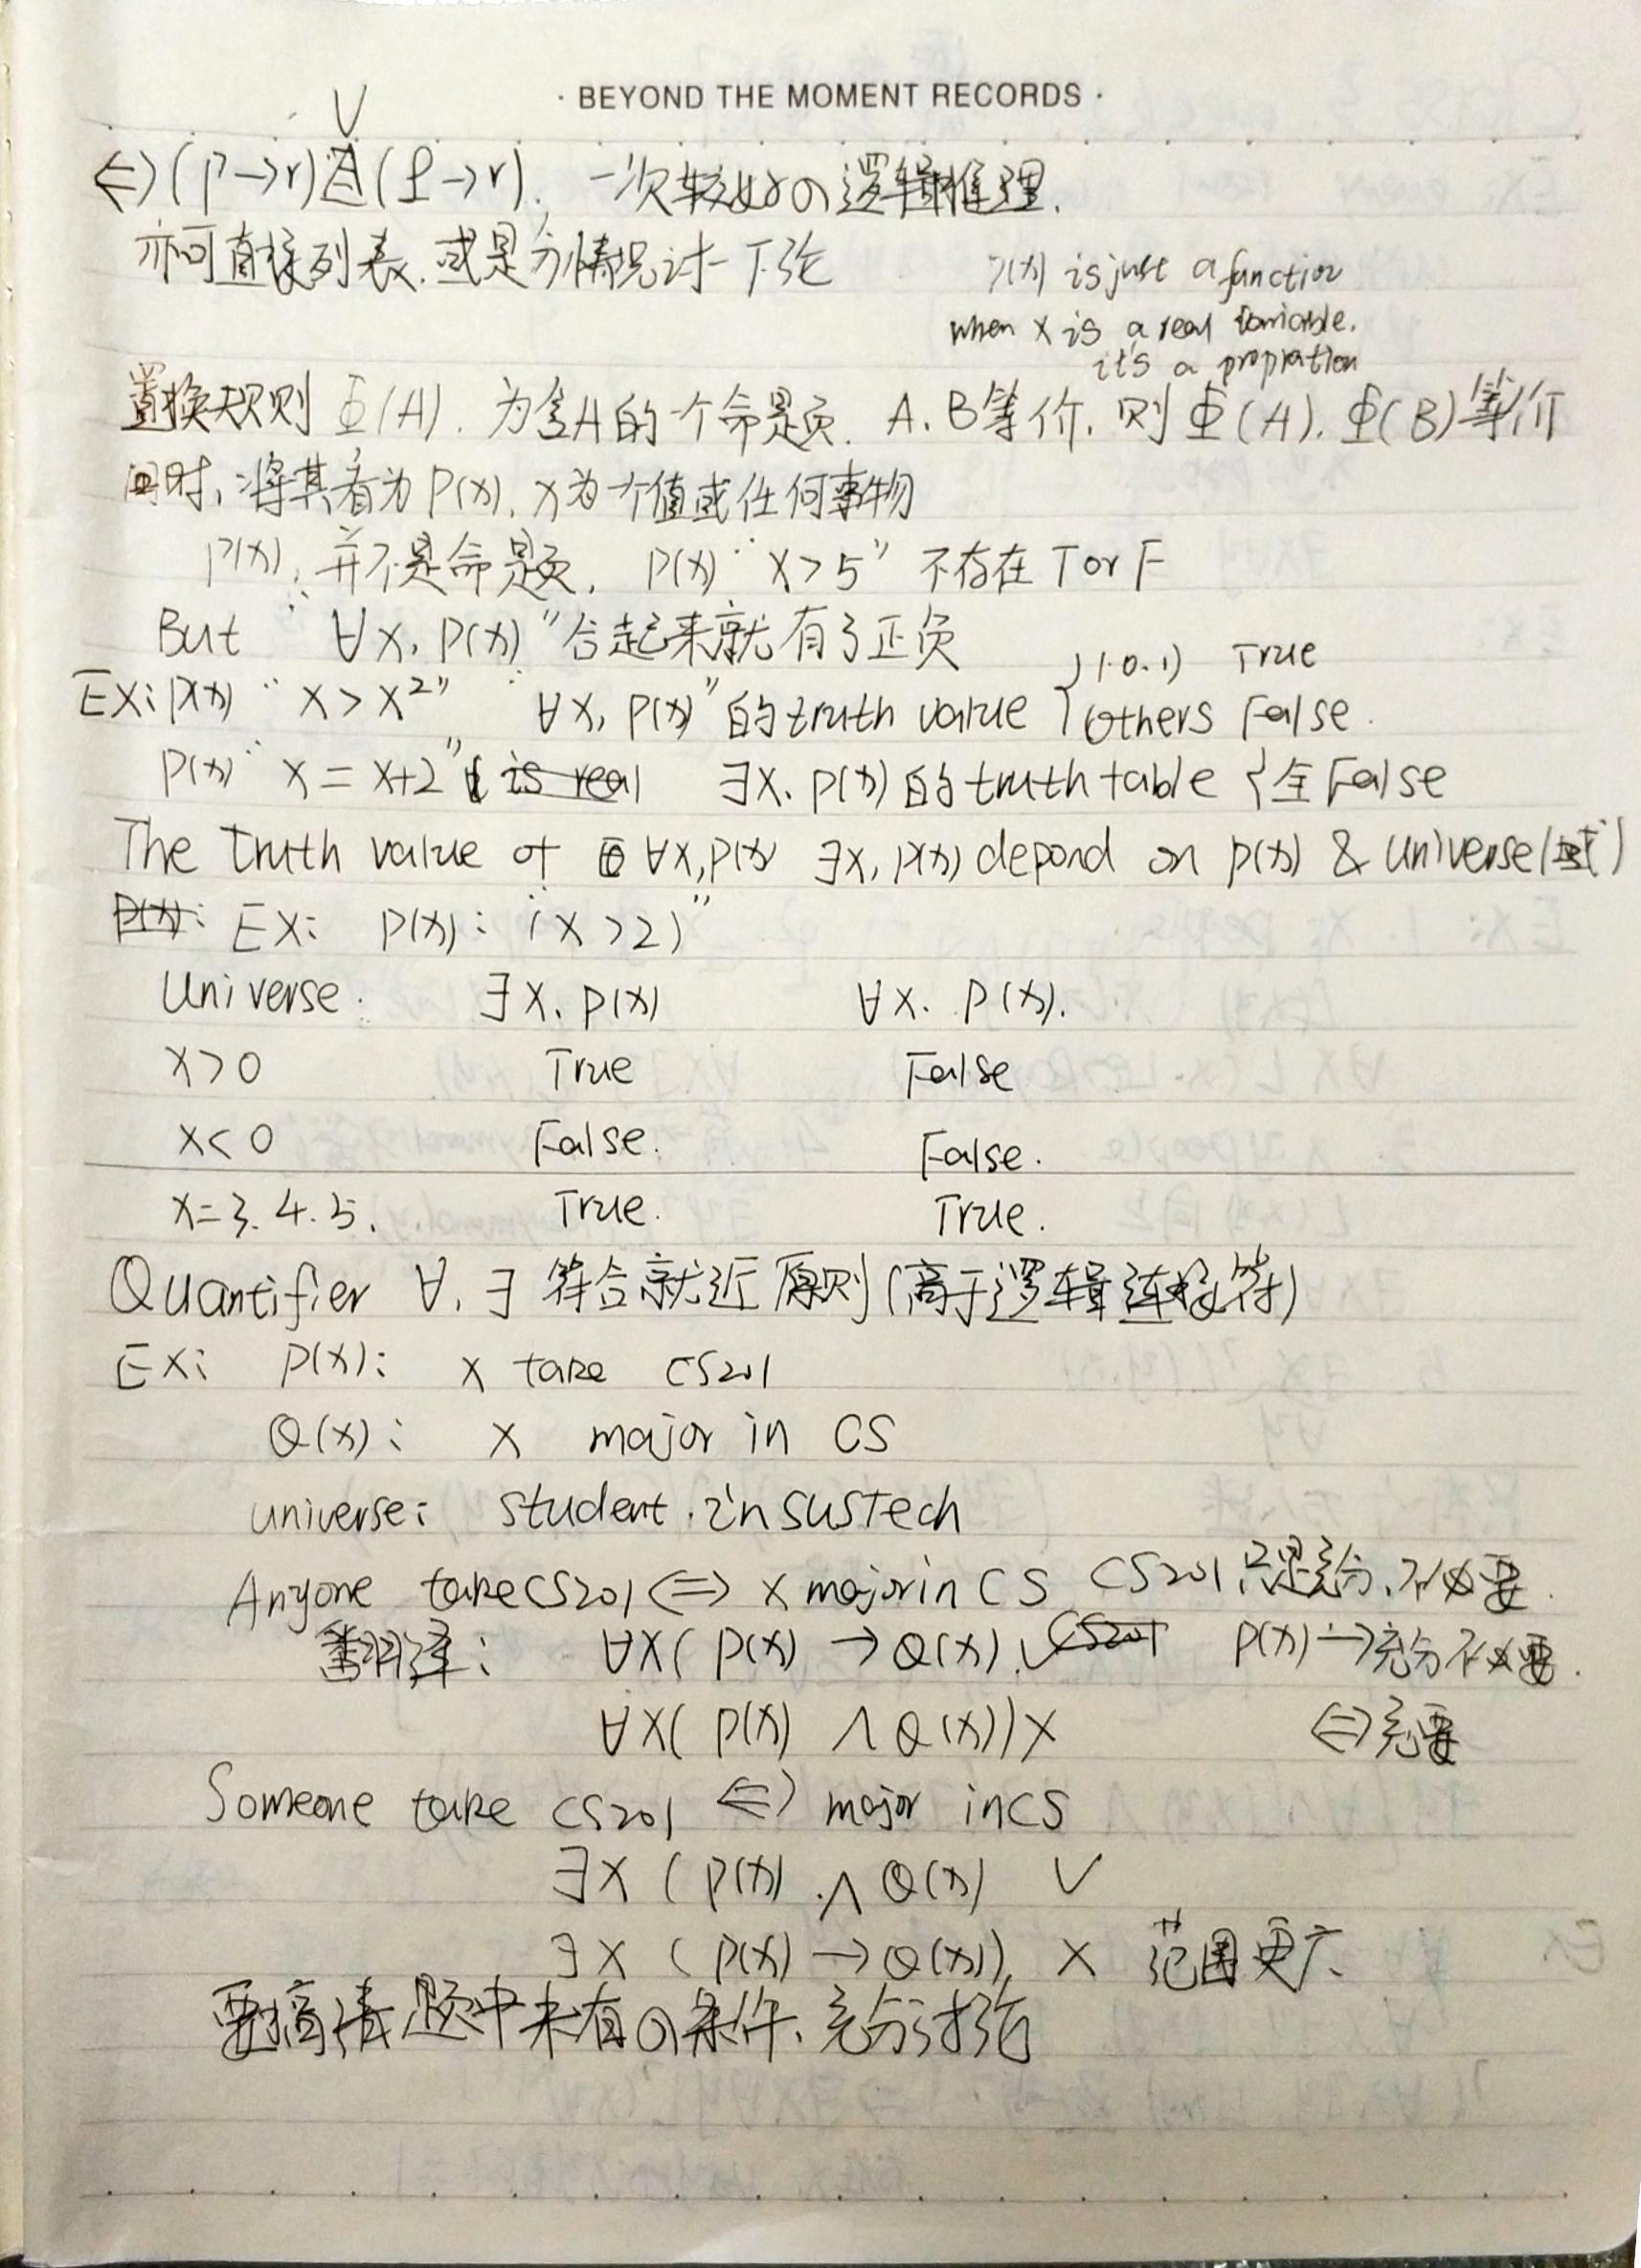 · BEYOND THE MOMENT RECORDS ·
∨
⇔(p→r) (q→r). 一次较好の逻辑推理.
亦可直接列表.或是分情况讨一下论
P(x) is just a function
when x is a real variable.
it's a propration
置换规则 Φ(A). 为含A的一个命题. A.B等价.则 Φ(A).Φ(B)等价
同时,将其看为P(x),x为一个值或任何事物
P(x),并不是命题. P(x) "x>5" 不存在 T or F
But "∀x, P(x)" 合起来就有了正负
EX: P(x) "x>x²" "∀x, P(x)"的truth value { (0.1) True
others False.
P(x) "x=x+2" is real ∃x. P(x)的truth table {全False
The truth value of ∀x,P(x) ∃x, P(x) depond on P(x) & universe(域)
P(x): EX: P(x): "(x>2)"
Universe. ∃x. P(x) ∀x. P(x).
x>0 True False
x<0 False. False.
x=3.4.5. True. True.
Quantifier ∀.∃ 符合就近原则(高于逻辑连接符)
EX: P(x): x take CS201
Q(x): x major in CS
universe: student in SUSTech
Anyone take CS201 ⇔ x major in CS CS201只是充分,不必要.
翻译: ∀x( P(x) → Q(x). ✓ CS201 P(x)→充分不必要.
∀x( P(x) ∧ Q(x)) × ⇔充要
Someone take CS201 ⇔ major in CS
∃x ( P(x) ∧ Q(x) ✓
∃x ( P(x) → Q(x)) × 范围更广
要搞清题中未有の条件、充分讨论